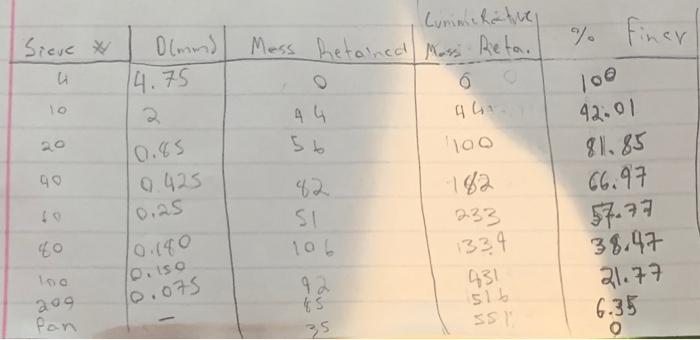 Sieve # D(mm) Mass Retained Cummulative Mass Reta. % Finer
4 4.75 0 0 100
10 2 44 44 92.01
20 0.85 56 100 81.85
40 0.425 82 182 66.97
60 0.25 51 233 57.77
80 0.180 106 339 38.47
100 0.150 92 431 21.77
200 0.075 85 516 6.35
Pan – 35 551 0